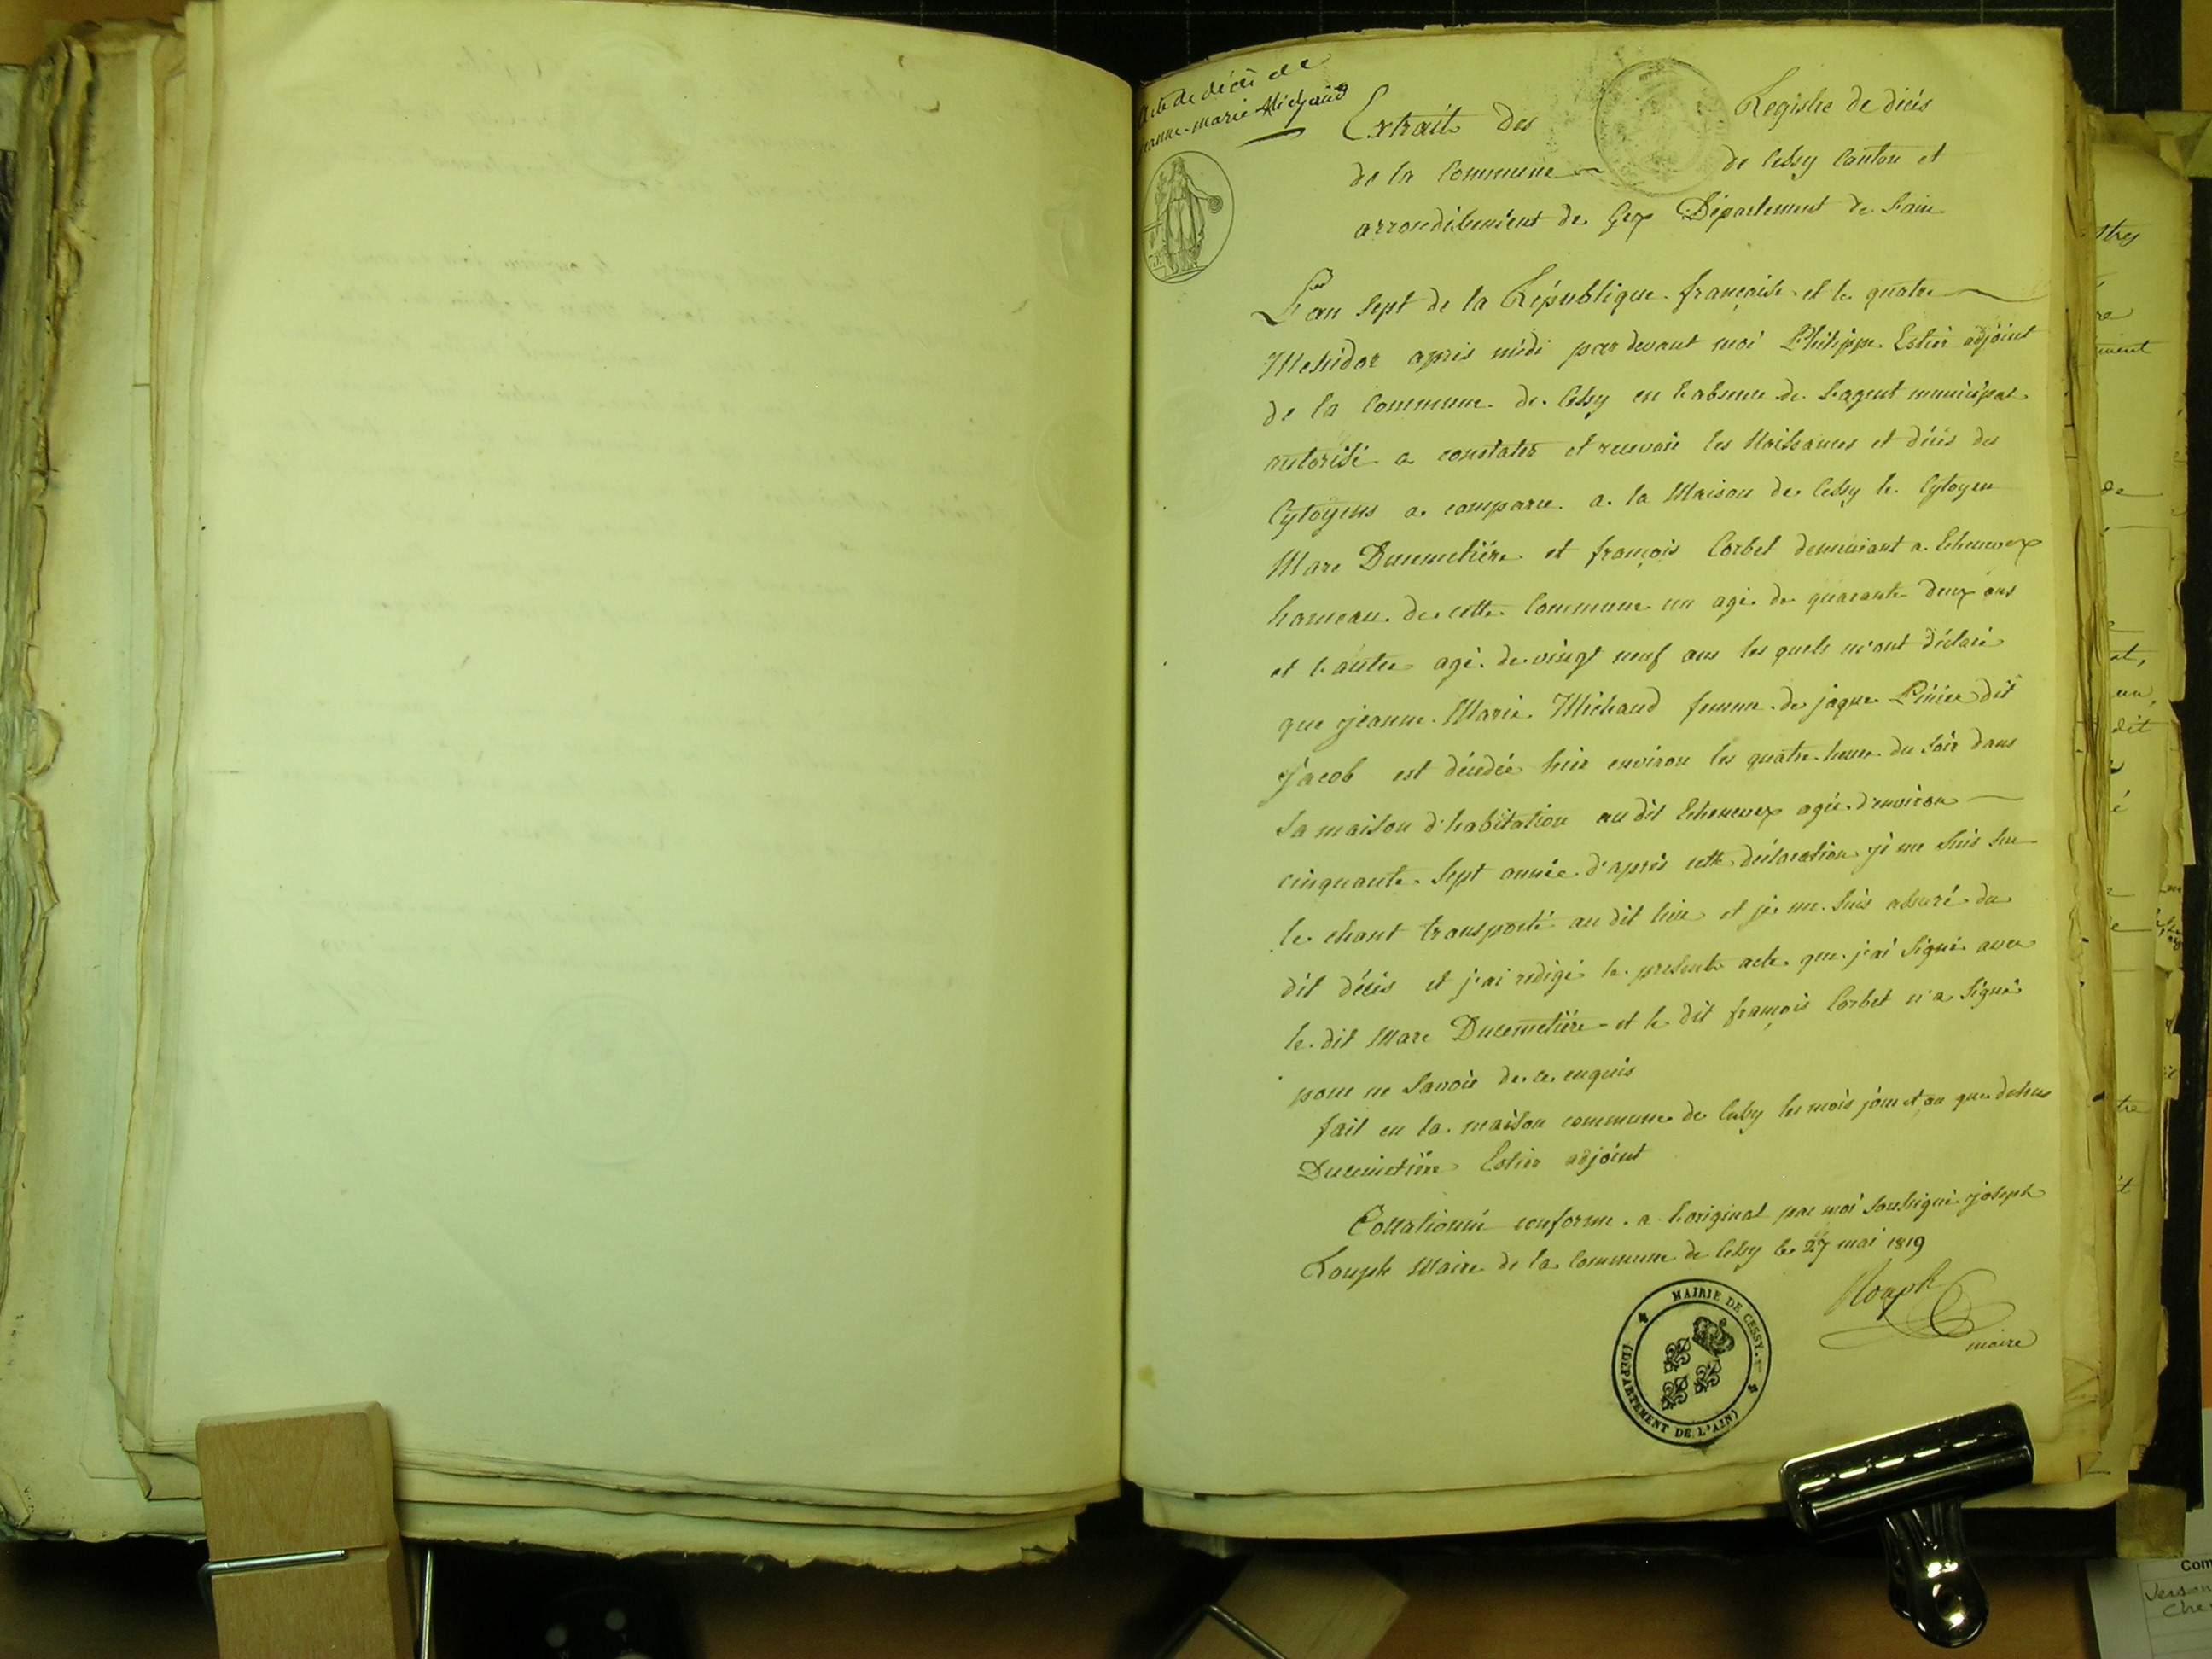 Acte de décès de
Jeanne-marie Michaud
Extrait des Registre de décès
de la Commune de Cessy Canton et
arrondissement de Gex Département de Lain
L'an Sept de la République française et le quatre
Messidor après midi par devant moi Philippe Estier adjoint
de la Commune de Cessy en l'absence de l'agent municipal
autorisé a constater et recevoir les Naissances et décès des
Cytoyens a comparu a la Maison de Cessy le Cytoyen
Marc Ducimetière et françois Corbet demeurant a Echenevex
hameau de cette Commune un agé de quarante deux ans
et l'autre agé de vingt neuf ans les quels m'ont déclaré
que jeanne Marie Michaud femme de jaque Pinier dit
Jacob est décédée hier environ les quatre heure du soir dans
sa maison d'habitation au dit Echenevex agée d'environ
cinquante Sept année d'après cette déclaration je me suis sur
le chant transporté au dit lieu et je me suis assuré du
dit décès et j'ai redigé le present acte que j'ai signé avec
le dit Marc Ducimetière et le dit françois Corbet n'a signé
pour ne Savoir de ce enquis
fait en la maison commune de Cessy les mois jour et an que dessus
Ducimetière Estier adjoint
Collationné conforme a l'original par moi soussigné joseph
Rouph Maire de la Commune de Cessy le 27 mai 1819
Rouph
maire
MAIRIE DE CESSY.
(DÉPARTEMENT DE L'AIN)